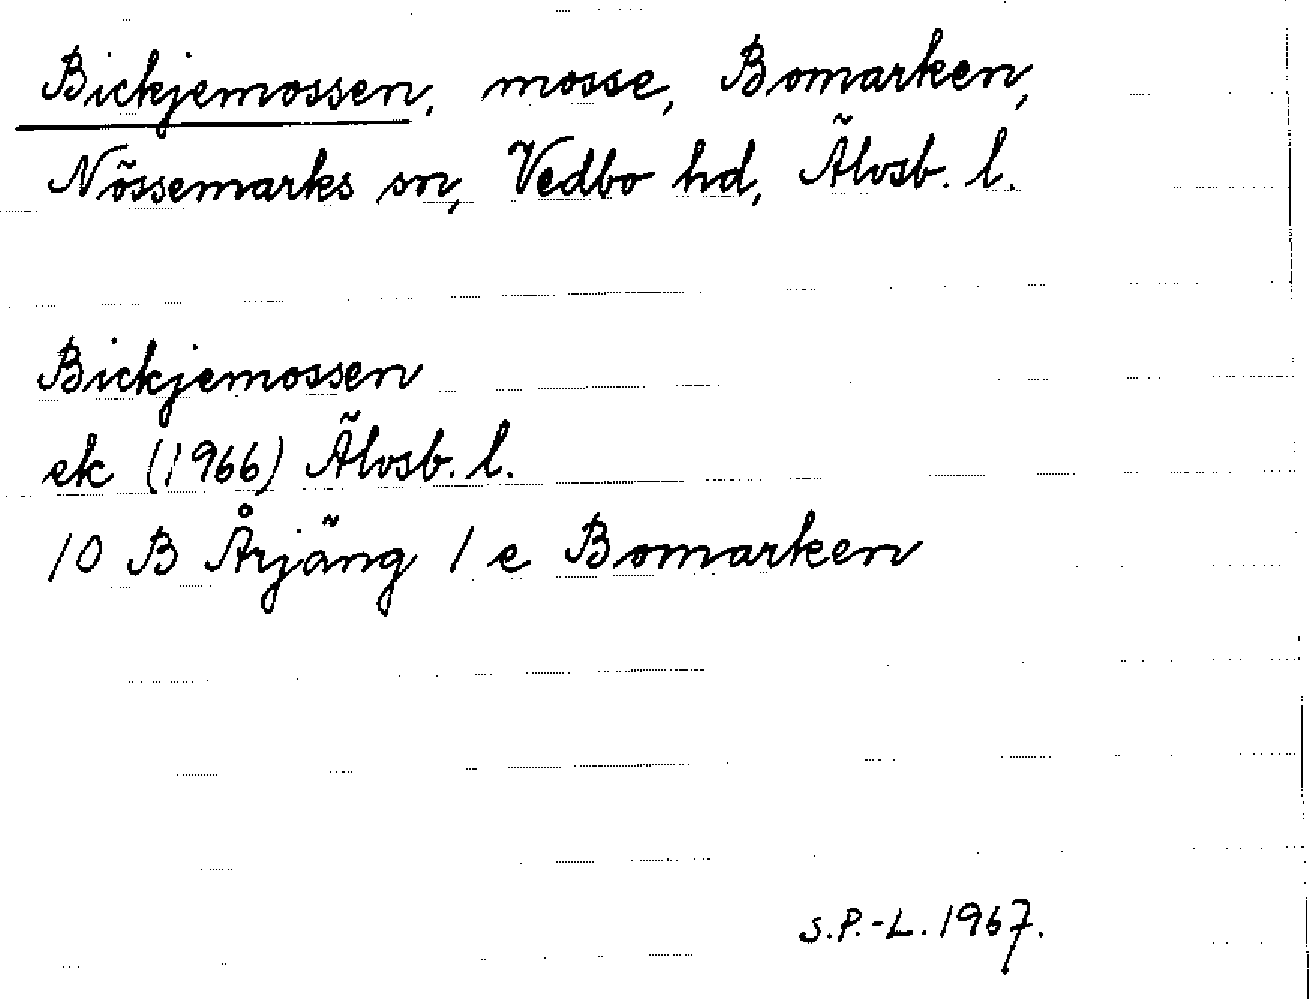 Bickjemossen, mosse, Bomarken,
Nössemarks sn, Vedbo hd, Älvsb. l.
Bickjemossen
ek (1966) Älvsb. l.
10 B Årjäng 1 e Bomarken
S.P.-L. 1967.